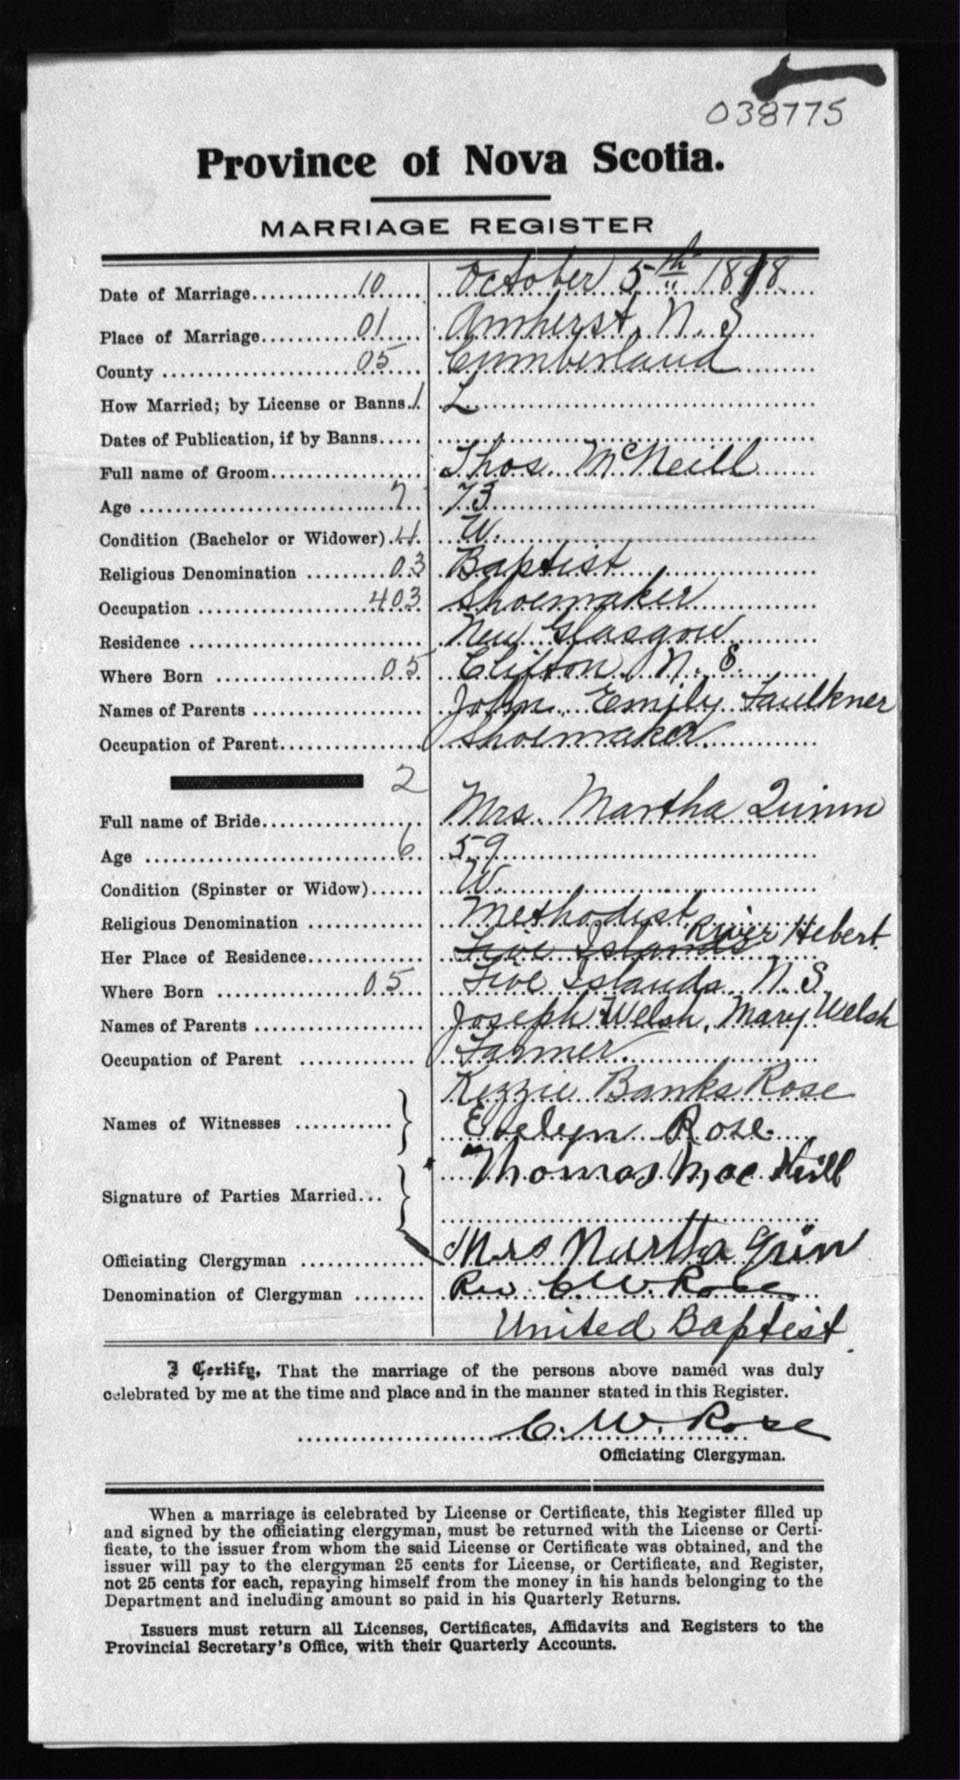 038775
Province of Nova Scotia.
MARRIAGE REGISTER
Date of Marriage 10 October 5th 1898
Place of Marriage 01 Amherst, N. S
County 05 Cumberland
How Married; by License or Banns 1 L
Dates of Publication, if by Banns
Full name of Groom Thos. McNeill
Age 7 73
Condition (Bachelor or Widower) 4 W.
Religious Denomination 03 Baptist
Occupation 403 Shoemaker
Residence New Glasgow
Where Born 05 Clifton, N. S.
Names of Parents John, Emily Faulkner
Occupation of Parent Shoemaker
2
Full name of Bride Mrs. Martha Quinn
Age 6 59
Condition (Spinster or Widow) W.
Religious Denomination Methodist
Her Place of Residence Five Islands River Hebert
Where Born 05 Five Islands, N. S.
Names of Parents Joseph Welsh, Mary Welsh
Occupation of Parent Farmer.
Kezzie Banks Rose
Names of Witnesses Evelyn Rose
Thomas Mac Neill
Signature of Parties Married
Officiating Clergyman Mrs Martha
Denomination of Clergyman Rev C. W. Rose
United Baptist.
I Certify, That the marriage of the persons above named was duly
celebrated by me at the time and place and in the manner stated in this Register.
C. W. Rose
Officiating Clergyman.
When a marriage is celebrated by License or Certificate, this Register filled up
and signed by the officiating clergyman, must be returned with the License or Certi-
ficate, to the issuer from whom the said License or Certificate was obtained, and the
issuer will pay to the clergyman 25 cents for License, or Certificate, and Register,
not 25 cents for each, repaying himself from the money in his hands belonging to the
Department and including amount so paid in his Quarterly Returns.
Issuers must return all Licenses, Certificates, Affidavits and Registers to the
Provincial Secretary's Office, with their Quarterly Accounts.